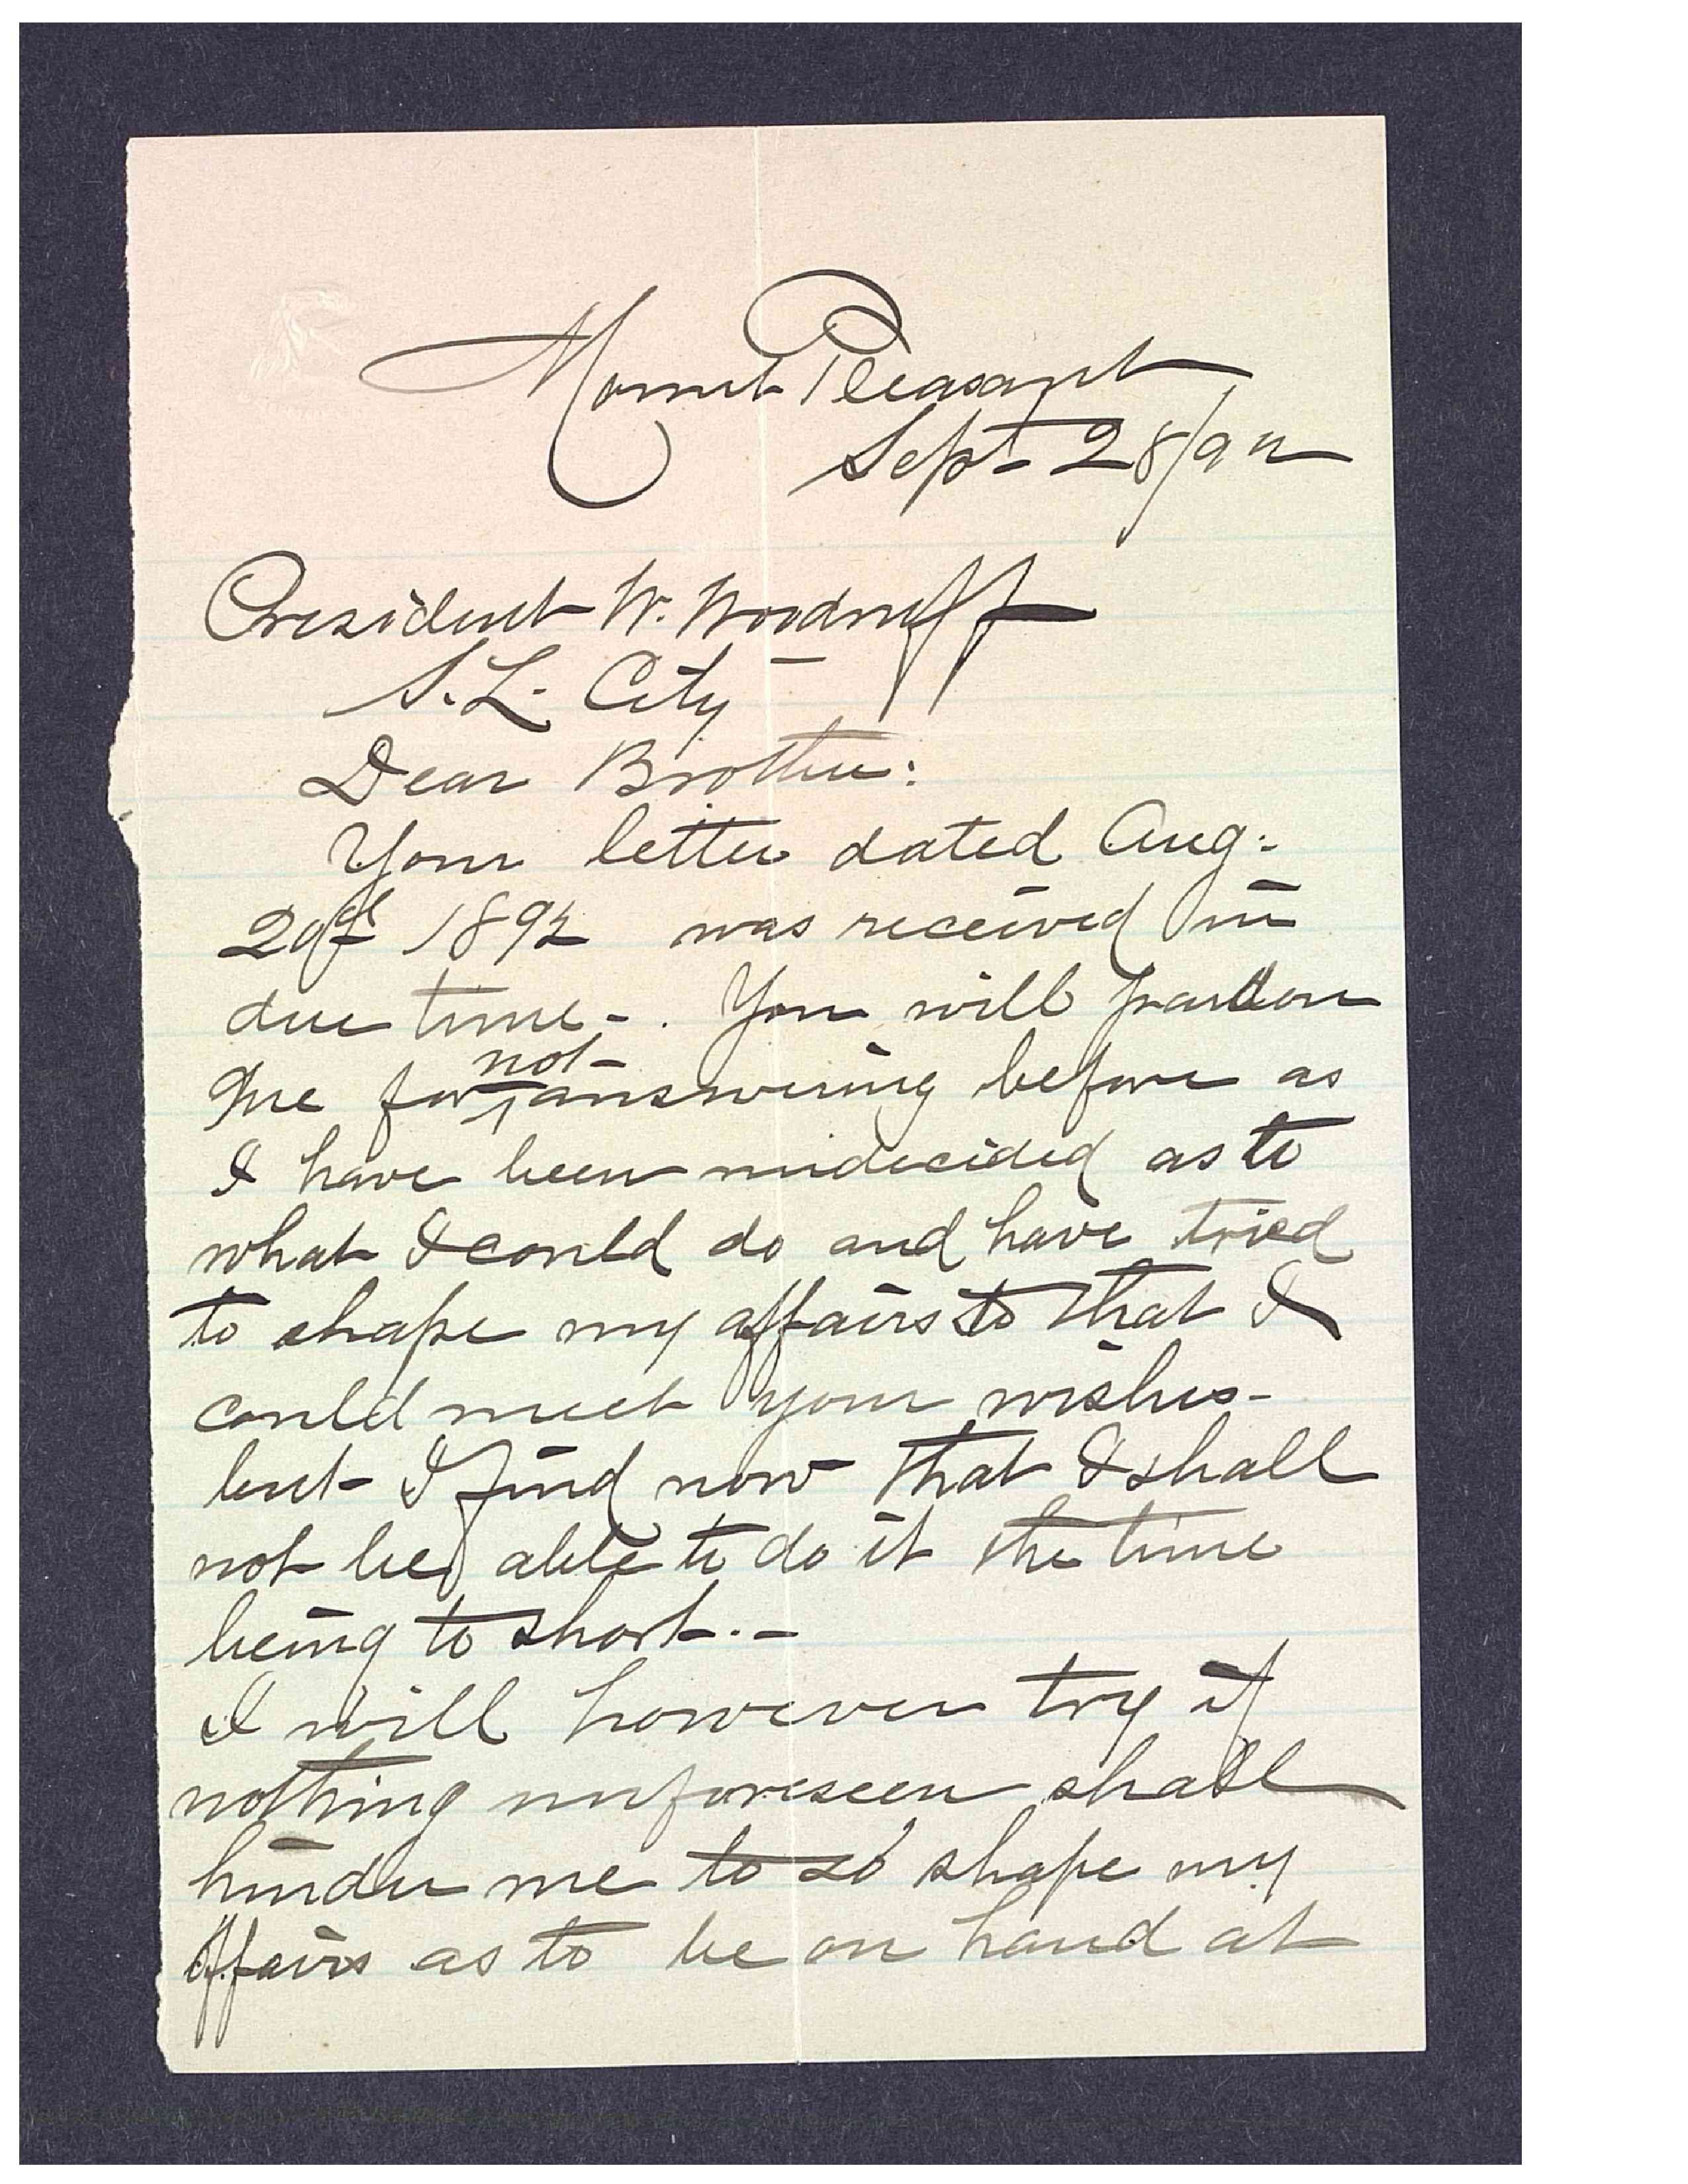 Mount Pleasant
Sept - 28/92
President W. Woodruff
S. L. City -
Dear Brother:
Your letter dated Aug.
1892 was received in
due time -. You will pardon
me for not answering before as
I have been undecided as to
what I could do and have tried
to shape my affairs so that I
could meet your wishes -
but I find now that I shall
not be able to do it the time
being to short. -
I will however try if
nothing unforeseen shall
hinder me to so shape my
affairs as to be on hand at